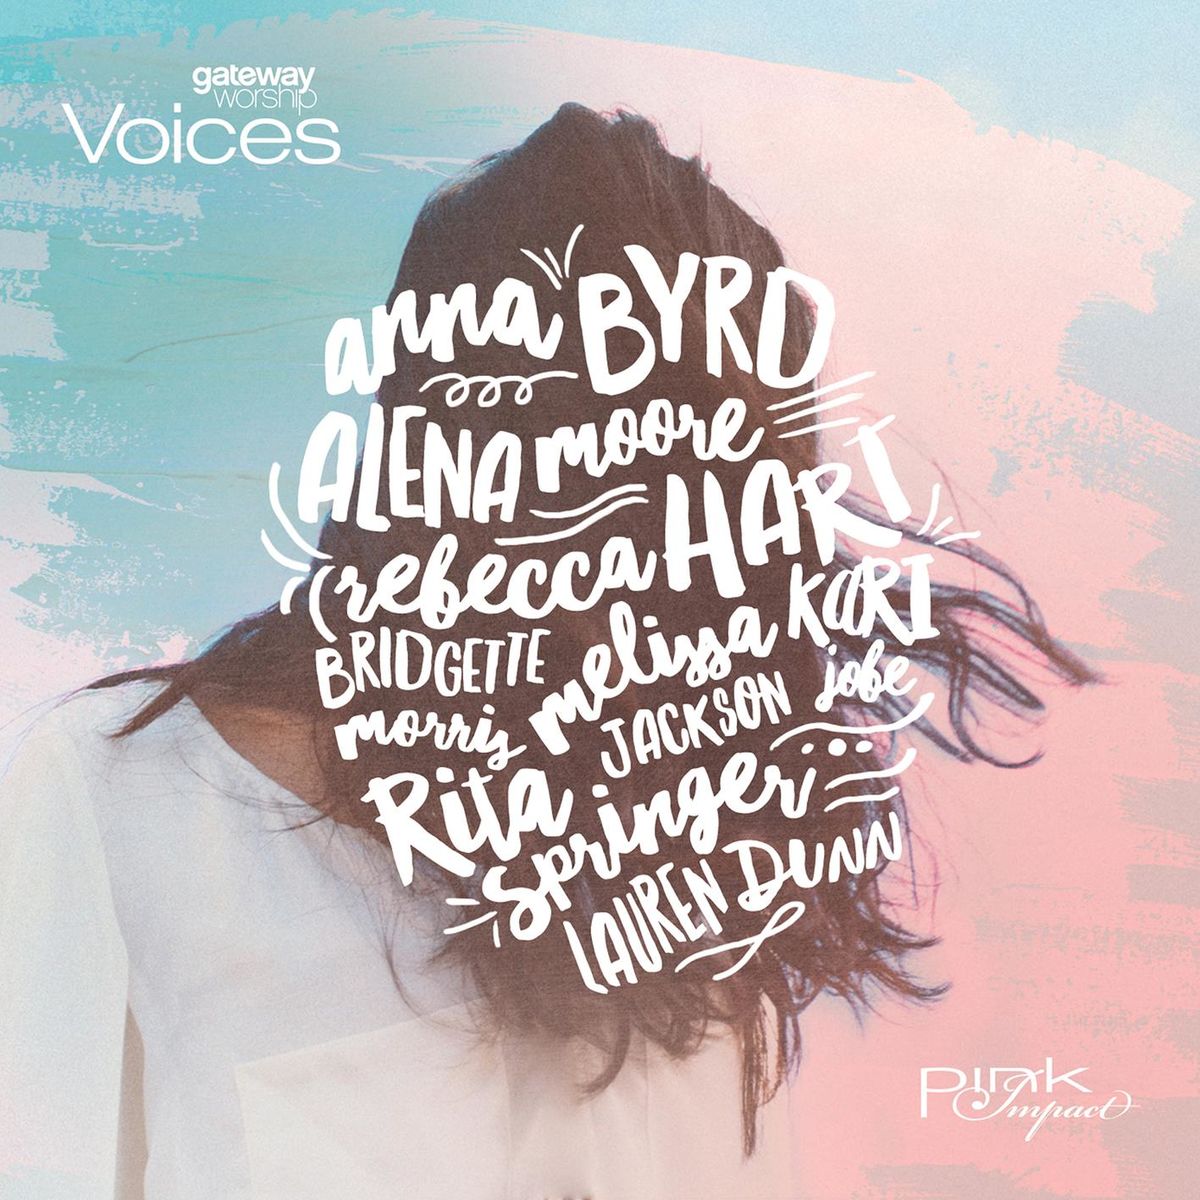 gateway
worship
Voices
anna BYRD
ALENA moore
rebecca HART
BRIDGETTE melissa KARI
morris JACKSON jobe
Rita springer
LAUREN DUNN
pink
Impact